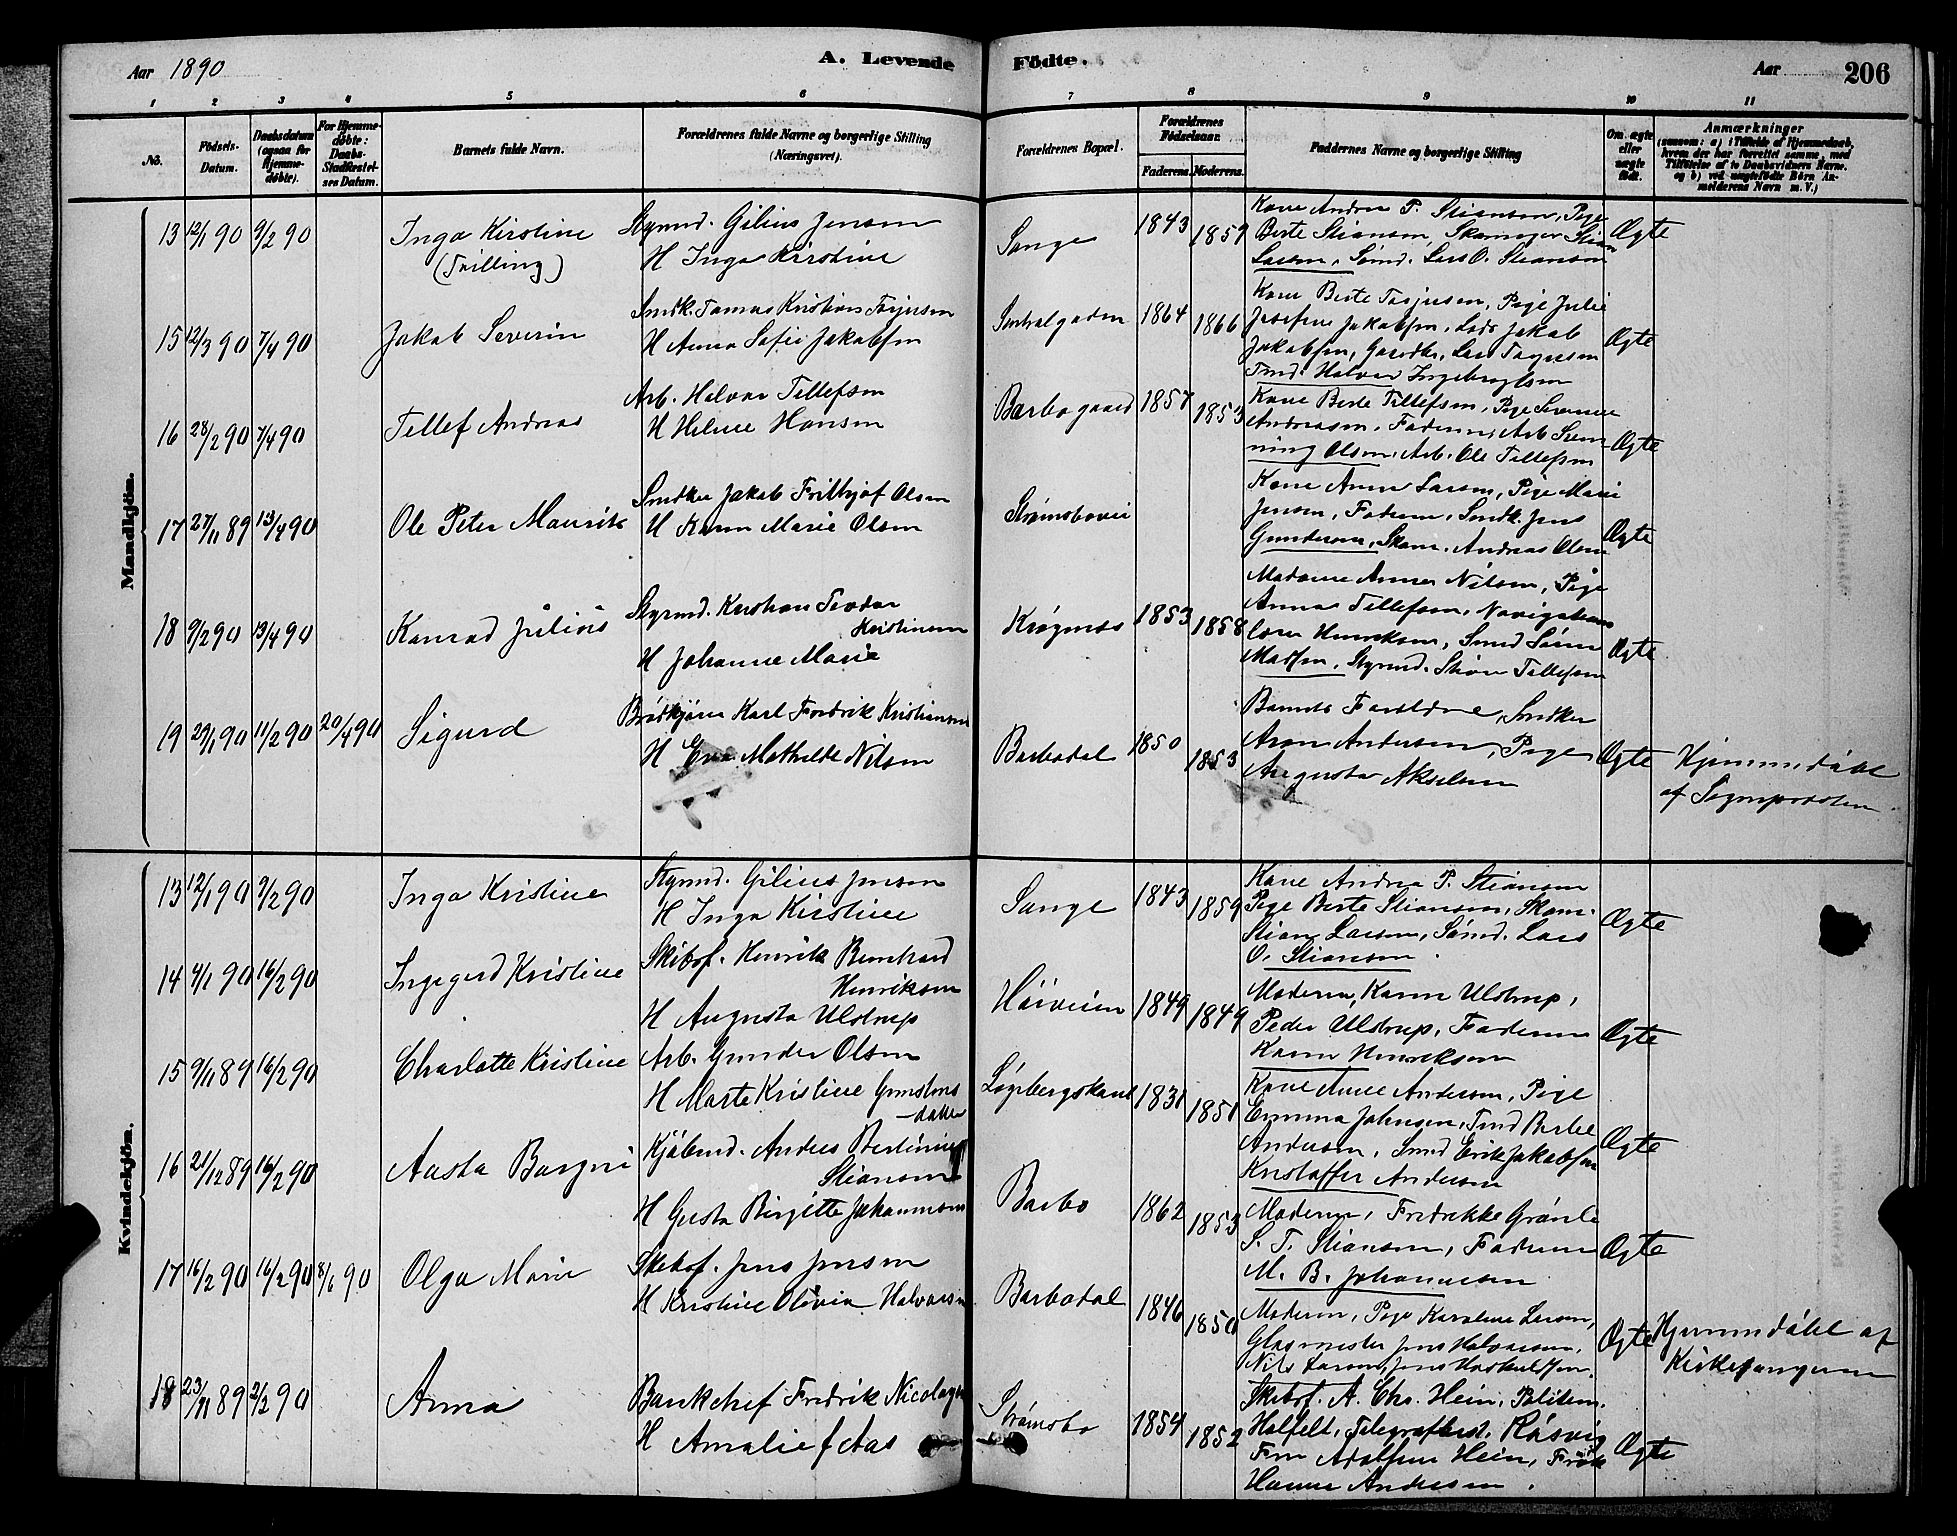 Aar 1890
A. Levende Födte.
Aar
206
1 2 3 4 5 6 7 8 9 10 11
No.
Födsels-Datum.
Daabsdatum (ogsaa for Hjemme-døbte).
For Hjemme-døbte: Daabs-Stadfæstel-ses Datum.
Barnets fulde Navn.
Forældrenes fulde Navne og borgerlige Stilling (Næringsvei).
Forældrenes Bopæl.
Forældrenes Födselsaar.
Faderens. Moderens.
Faddernes Navne og borgerlige Stilling
Om ægte eller uægte födt.
Anmærkninger
(saasom: a) i Tilfælde af Hjemmedaab, hvem der har forrettet samme, med Tilføielse af to Daabsvidners Navne. og b) ved uægtefødte Børn An-melderens Navn m. V.)
Mandkjön.
13 12/1 90 9/2 90 Inga Kirstine (Trilling)
Styrmd. Gilius Jensen
H Inga Kirstine
Songe 1843 1859
Kone Andrea T. Stiansen, Pige
Berte Stiansen, Stian
Larsen, Sømd. Lars O. Stiansen
Ægte
15 12/3 90 7/4 90 Jakob Severin
Snedk. Tomas Kristian Terjesen
H Anna Sofie Jakobsen
Sentralgaden 1864 1866
Kone Berte Terjesen, Pige Julie
Josefine Jakobsen, Lods Jakob
Jakobsen, Gaardbr. Lars Terjesen
Tmd. Halvor Ingebregtsen
Ægte
16 28/2 90 7/4 90 Tellef Andreas
Arb. Halvor Tellefsen
H Helene Hansen
Barbogaard 1857 1853
Kone Berte Tellefsen, Pige
Andreasen, Faderen, Arb. Svenning Olsen, Arb. Ole Tellefsen
Ægte
17 27/11 89 13/4 90 Ole Peter Mauritz
Snedker Jakob Frithjof Olsen
H Karen Marie Olsen
Strømsbovei
Kone Anna Larsen, Pige Marie
Jensen, Faderen, Snedk. Jens
Gundersen, Skom. Andreas Olsen
Ægte
18 9/2 90 13/4 90 Konrad Julius
Styrmd. Kristian Teodor
Kristensen
H Johanne Marie
Krøgenes 1853 1858
Madame Anna Nilsen, Pige
Anna Tellefsen, Navigations
lærer Henriksen, Smed Søren
Madsen, Styrmd. Stian Tellefsen
Ægte
19 29/1 90 11/2 90 20/4 90 Sigurd
Brødkjører Karl Fredrik Kristiansen
H Eva Mathilde Nilsen
Barbodal 1850 1853
Barnets Forældre, Snedker
Aron Andersen, Pige
Augusta Akselsen
Ægte
Hjemmedøbt
af Sogneprosten
Kvindekjön.
13 12/1 90 9/2 90 Inga Kristine
Styrmd. Gilius Jensen
H Inga Kirstine
Songe 1843 1859
Kone Andrea T. Stiansen
Pige Berte Stiansen, Skom.
Stian Larsen, Sømd. Lars
O. Stiansen
Ægte
14 4/1 90 16/2 90 Ingegerd Kristine
Skibsf. Henrik Bernhard
Henriksen
H Augusta Ulstrup
Høiveien 1849 1849
Moderen, Karen Ulstrup,
Peder Ulstrup, Faderen
Karen Henriksen
Ægte
15 9/11 89 16/2 90 Charlotte Kristine
Arb. Gunder Olsen
H Marte Kristine
-datter
Løgebergskaret 1831 1851
Kone Anne Andersen, Pige
Emma Johnsen, Tmd
Andersen, Smed Erik Jakobsen
Kristoffer Andersen
Ægte
16 21/12 89 16/2 90 Aasta Borgni
Kjøbmd. Anders Bertinius
Stiansen
H Gusta Birgitte Johannesen
Barbo 1862 1853
Moderen, Fredrikke Grønli
S. T. Stiansen, Faderen
M. B. Johannesen
Ægte
17 16/2 90 16/2 90 8/6 90 Olga Marie
Skibsf. Jens Jensen
H Kristine Olivia Halvorsen
Barbodal 1846 1850
Moderen, Pige Karoline Larsen,
Glasmester Jens Halvorsen,
Nils Larsen,
Ægte
Hjemmedøbt af
Kirkesangeren
18 23/11 89 2/2 90 Anna
Bankchef Fredrik Nicolaysen
H Amalie f Aas
Strømsbo 1854 1852
Skibsf. A. Chr. Hein, Politim.
Holfelt, Telegrafbest. Røsvig
Fru Adolfine Hein, Frøk
Hanna Andresen.
Ægte